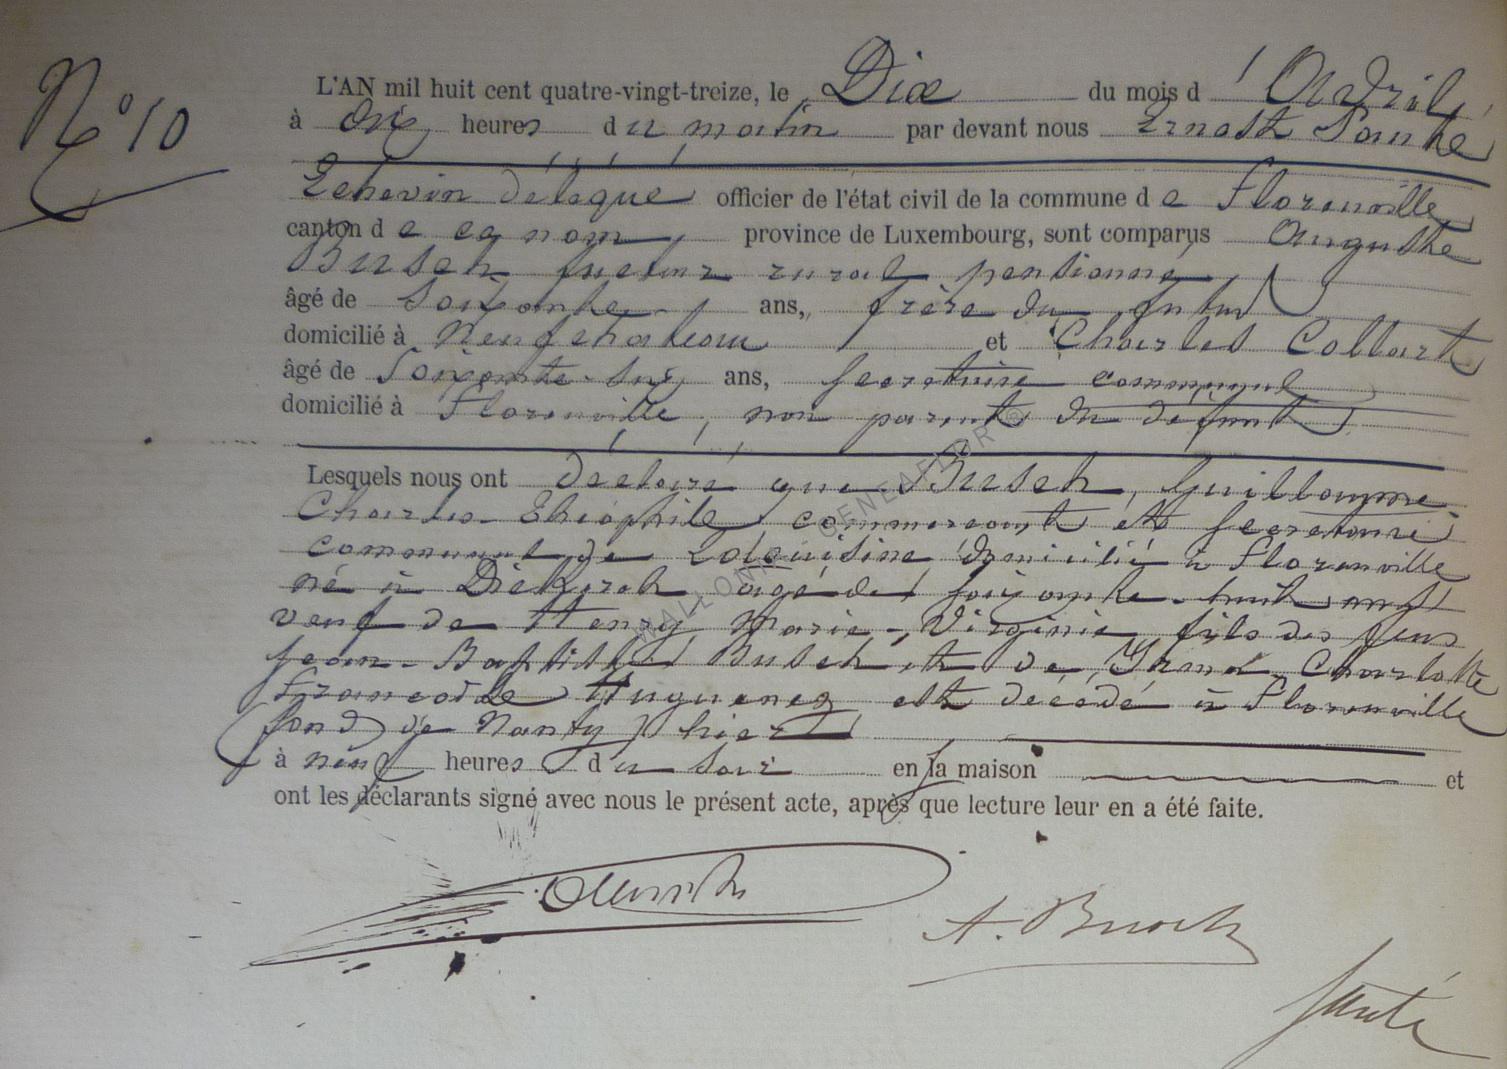 N° 10
L'AN mil huit cent quatre-vingt-treize, le Dix du mois d'Avril,
à dix heures du matin par devant nous Ernest Santé
Echevin délégué officier de l'état civil de la commune de Florenville,
canton de ce nom, province de Luxembourg, sont comparus Auguste
Busch facteur rural pensionné,
âgé de soixante ans, frère du
domicilié à Neufchateau et Charles Collart
âgé de Soixante-six ans, Secretaire communal
domicilié à Florenville, non parent du défunt
Lesquels nous ont déclaré que Busch, Guillaume
Charles Théophile commercant et secretaire
communal de domicilié à Florenville
né à Diekirch agé de soixante-huit ans
veuf de Henry Marie-Virginie, fils des feus
Jean-Baptiste Busch et de Charlotte
est décédé à Florenville
(fond de Nanty) hier
à neuf heures du soir en la maison et
ont les déclarants signé avec nous le présent acte, après que lecture leur en a été faite.
A. Busch
Santé
WALLONIE GENEAFLOR ®